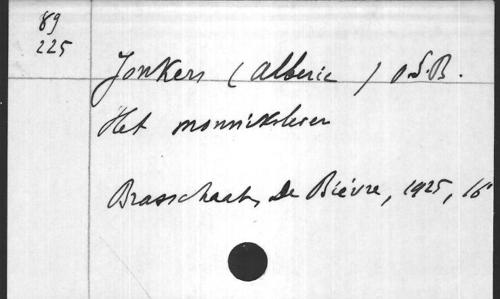 89
225
Jonkers (Alberic) O.S.B.
Het monniksleven
Brasschaat, De Bièvre, 1925, 16°